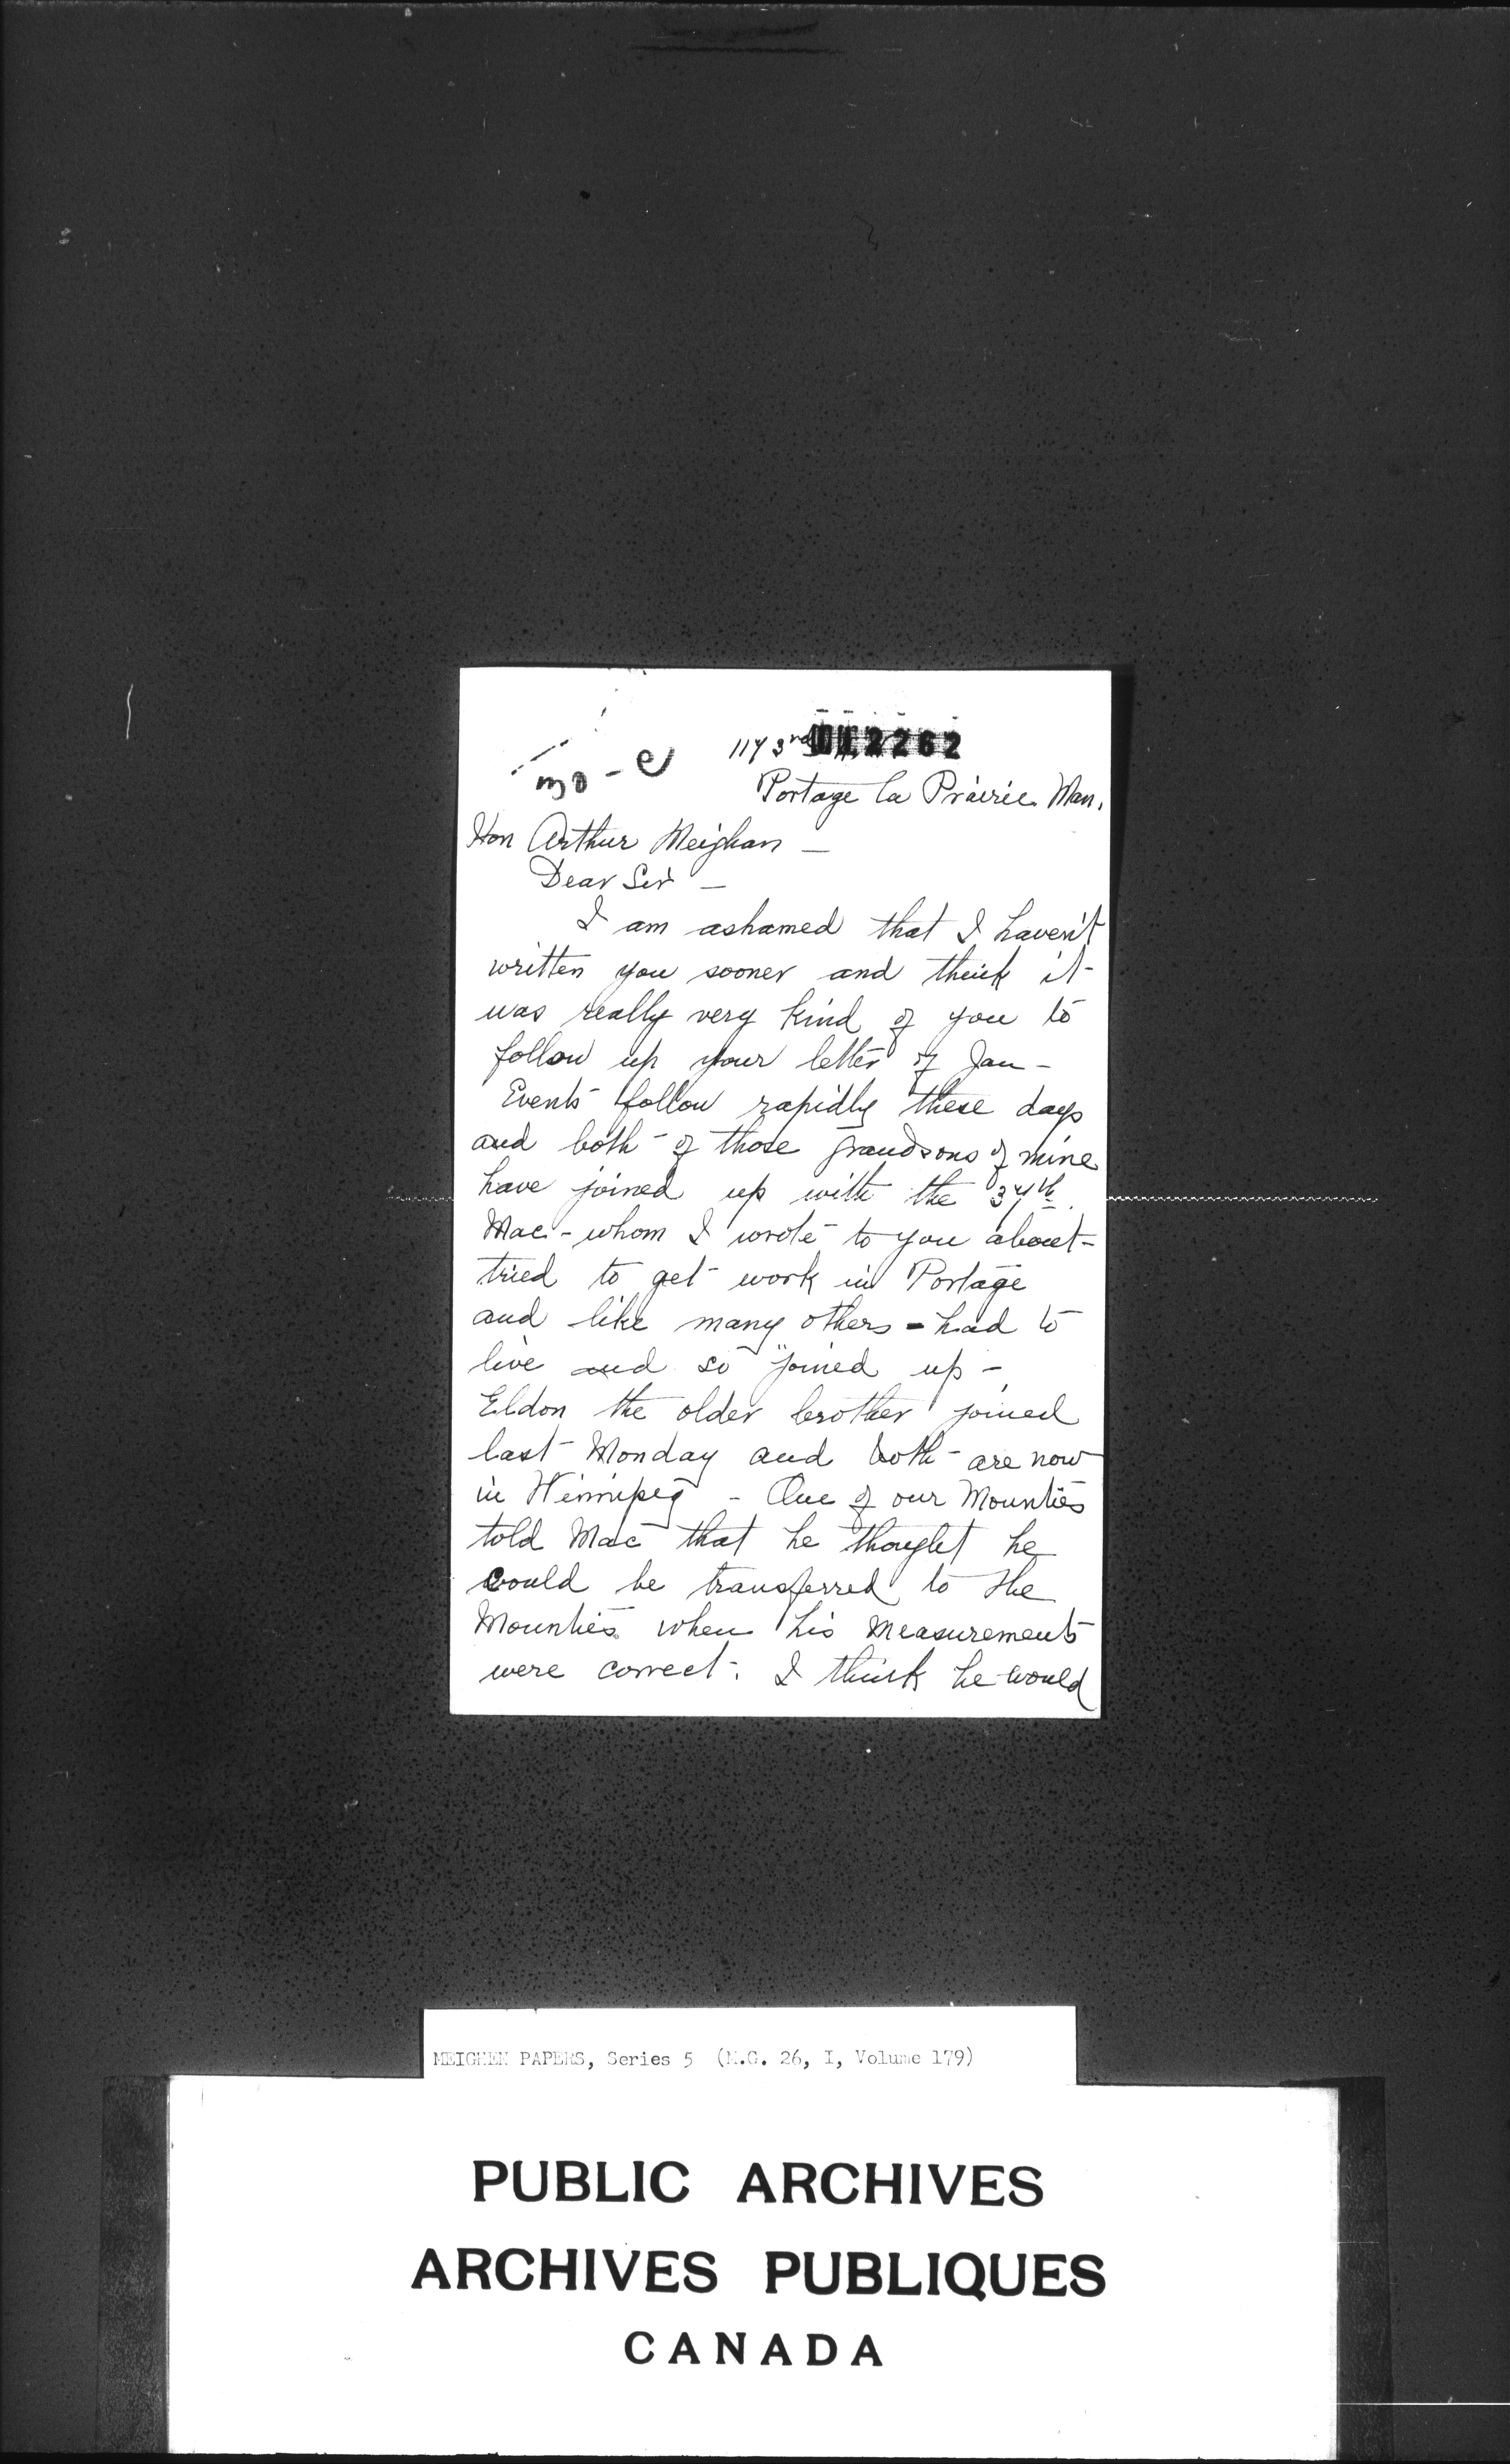 117 3rd 012262
mo - e
Portage la Prairie Man.
Hon Arthur Meighan —
Dear Sir —
I am ashamed that I haven't
written you sooner and think it
was really very kind of you to
follow up your letter of Jan —
Events follow rapidly these days
and both of those grandsons of mine
have joined up with the 37th.
Mac - whom I wrote to you about -
tried to get work in Portage
and like many others - had to
live and so "joined up -
Eldon the older brother joined
last Monday and both are now
in Winnipeg - One of our Mounties
told Mac that he thought he
could be transferred to the
Mounties when his measurements
were correct. I think he would
MEIGHEN PAPERS, Series 5 (M.G. 26, I, Volume 179)
PUBLIC ARCHIVES
ARCHIVES PUBLIQUES
CANADA